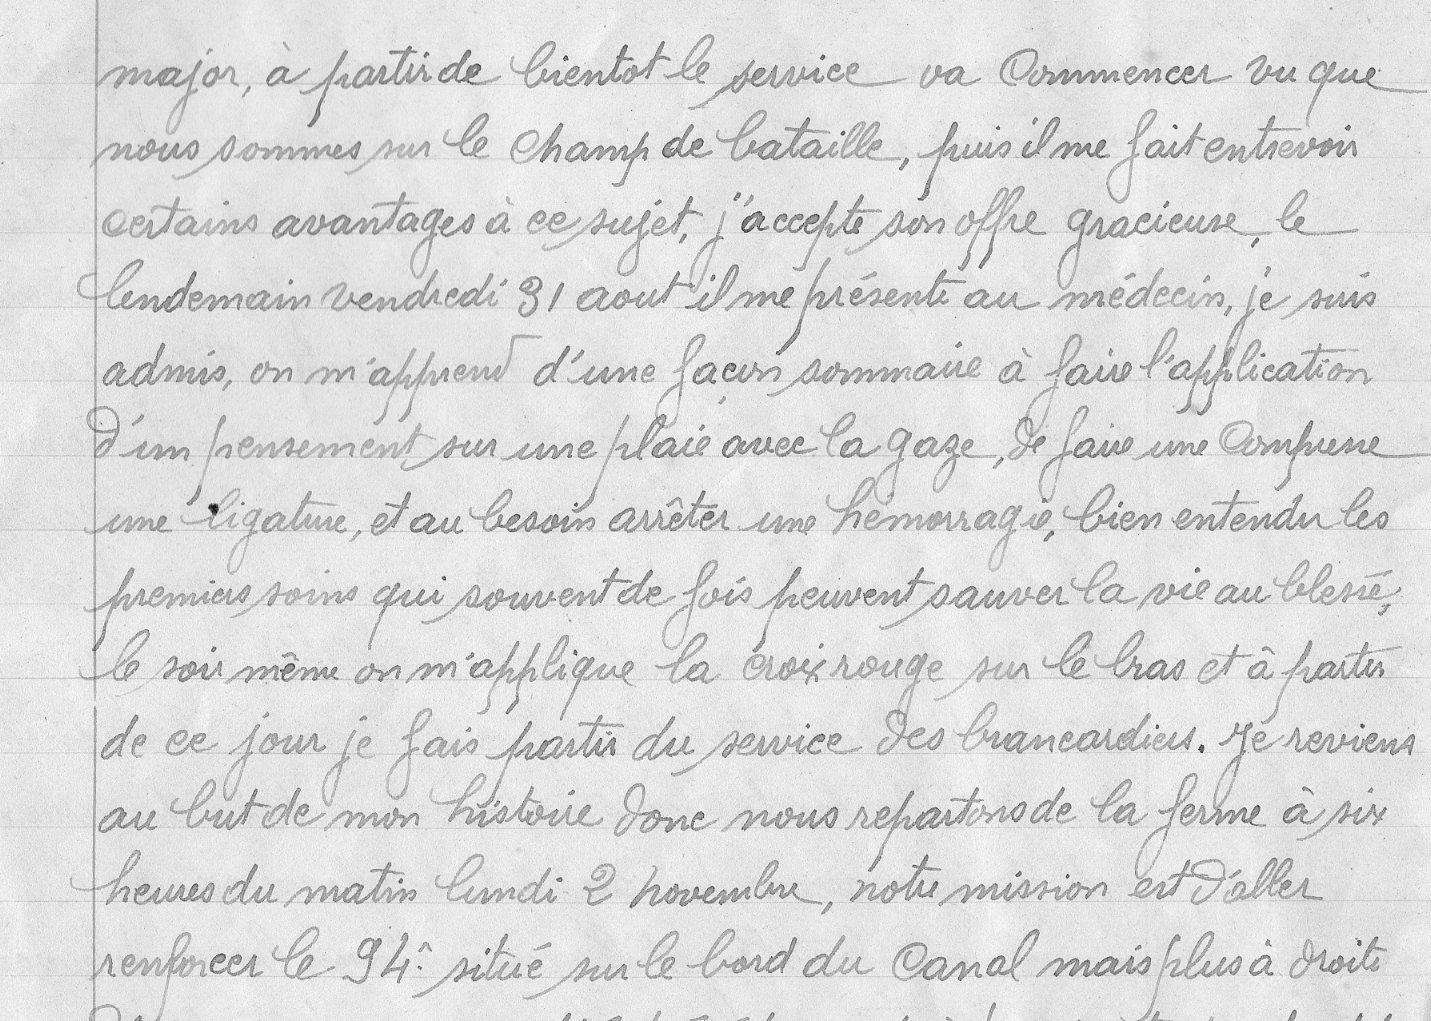 major, à partir de bientot le service va commencer vu que
nous sommes sur le champ de bataille, puis il me fait entrevoir
certains avantages à ce sujet, j'accepte son offre gracieuse, le
lendemain vendredi 31 aout il me présente au médecin, je suis
admis, on m'apprend d'une façon sommaire à faire l'application
d'un pensement sur une plaie avec la gaze, de faire une compresse
une ligature, et au besoin arrêter une hémorragie, bien entendu les
premiers soins qui souvent de fois peuvent sauver la vie au blessé,
le soir même on m'applique la croix rouge sur le bras et à partir
de ce jour je fais partir du service des brancardiers. Je reviens
au but de mon histoire donc nous repartons de la ferme à six
heures du matin lundi 2 novembre, notre mission est d'aller
renforcer le 94e situé sur le bord du Canal mais plus à droite